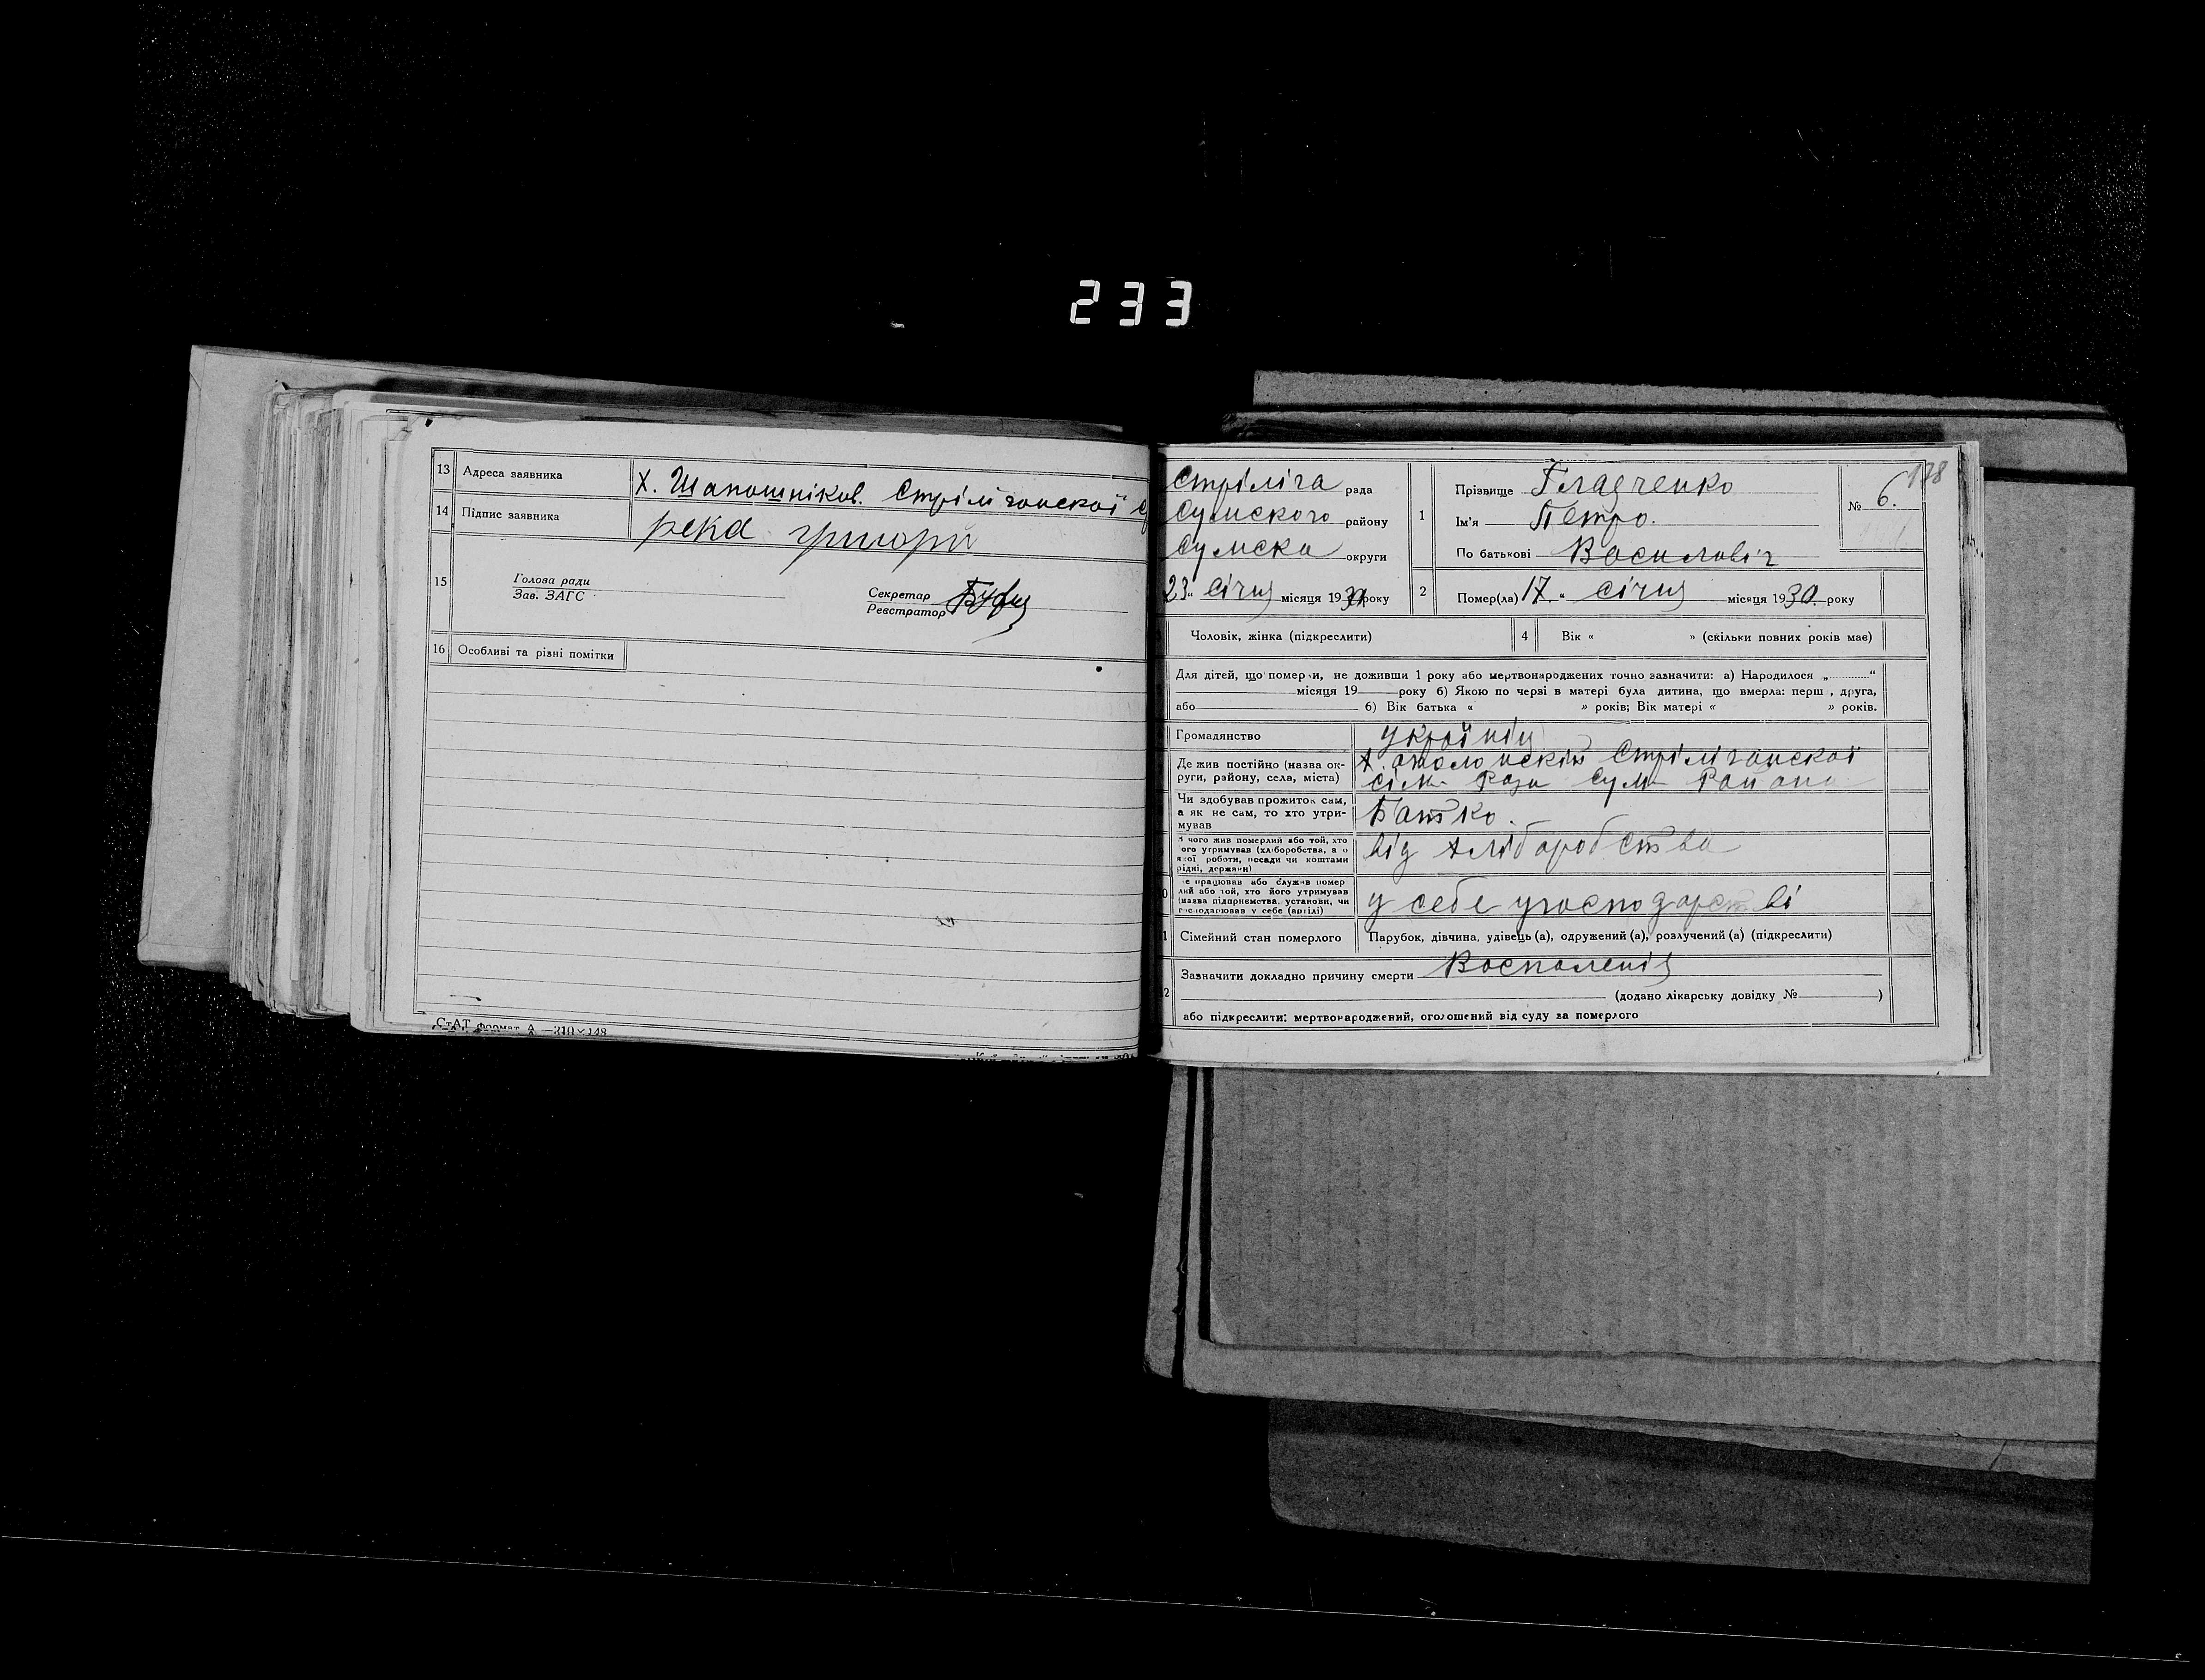 233
13 Адреса заявника х. Шапошніков. Стрілічанскої
14 Підпис заявника река григорій
15 Голова ради
Зав. ЗАГС
Секретар
Реєстратор
16 Особливі та різні помітки
СтАТ формат А 210×148
Стріліча рада
Сумского району
Сумска округи
23 " січня місяця 1930 року
1 Прізвище Гладченко
Ім'я Петро.
По батькові Василовіч
№ 6.
178
2 Помер(ла) 17 " січня місяця 1930. року
Чоловік, жінка (підкреслити)
4 Вік « » (скільки повних років має)
Для дітей, що померли, не доживши 1 року або мертвонароджених точно зазначити: а) Народилося „ "
місяця 19 року б) Якою по черзі в матері була дитина, що вмерла: перш , друга,
або б) Вік батька « » років; Вік матері « » років.
Громадянство україніц
Де жив постійно (назва ок-
руги, району, села, міста)
Х. Стрілічанскої
сіль Ради Сум Району
Чи здобував прожиток сам,
а як не сам, то хто утри-
мував
Батко.
з чого жив померлий або той, хто
ого утримував (хліборобства, а о
якої роботи, посади чи коштами
рідні, держави)
від хліборобства
е працював або служив помер
лий або той, хто його утримував
(назва підприємства, установи, чи
господарював у себе (артілі)
у себе угосподарстві
Сімейний стан померлого
Парубок, дівчина, удівець (а), одружений (а), розлучений (а) (підкреслити)
12 Зазначити докладно причину смерти Воспаленія
(додано лікарську довідку № )
або підкреслити: мертвонароджений, оголошений від суду за померлого